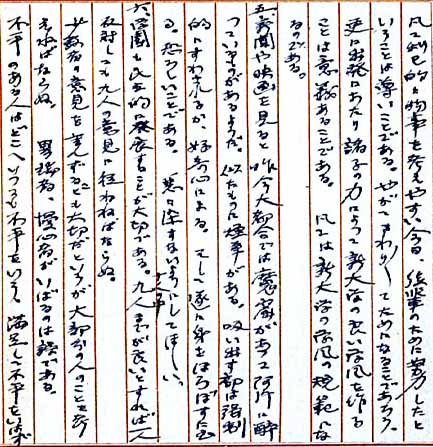 利己的に物事を考えやすい今日、後輩のために努力したと
いうことは尊いことである。やがてまわりしてためになることであろう。
更に出発にあたり諸子の力によって新大学の良い学風を作る
ことは意義あることである。凡ては新大学の学風の規範にな
るのである。
五、新聞や映画を見ると昨今大都会では魔窟があって阿片に酔
っている のがあるようだ。似たものに煙草がある。吸い出す 都は得制
的にすわされるか、好奇心による。そして遂に身をほろぼすた
る。恐ろしいことである。悪に染まないようにしてほしい。
六、学園も民主的に発展することが大切である。九人までが良いとすれば一人
反対しても九人の意見に従わねばならぬ。
少数者の意見を重んずることも大切だというが大部分の人のことを考
えねばならぬ。異端者、慢心者がいばるのは誤である。
不平のある人はどこへいっても不平をいう。満足して不平をいわず